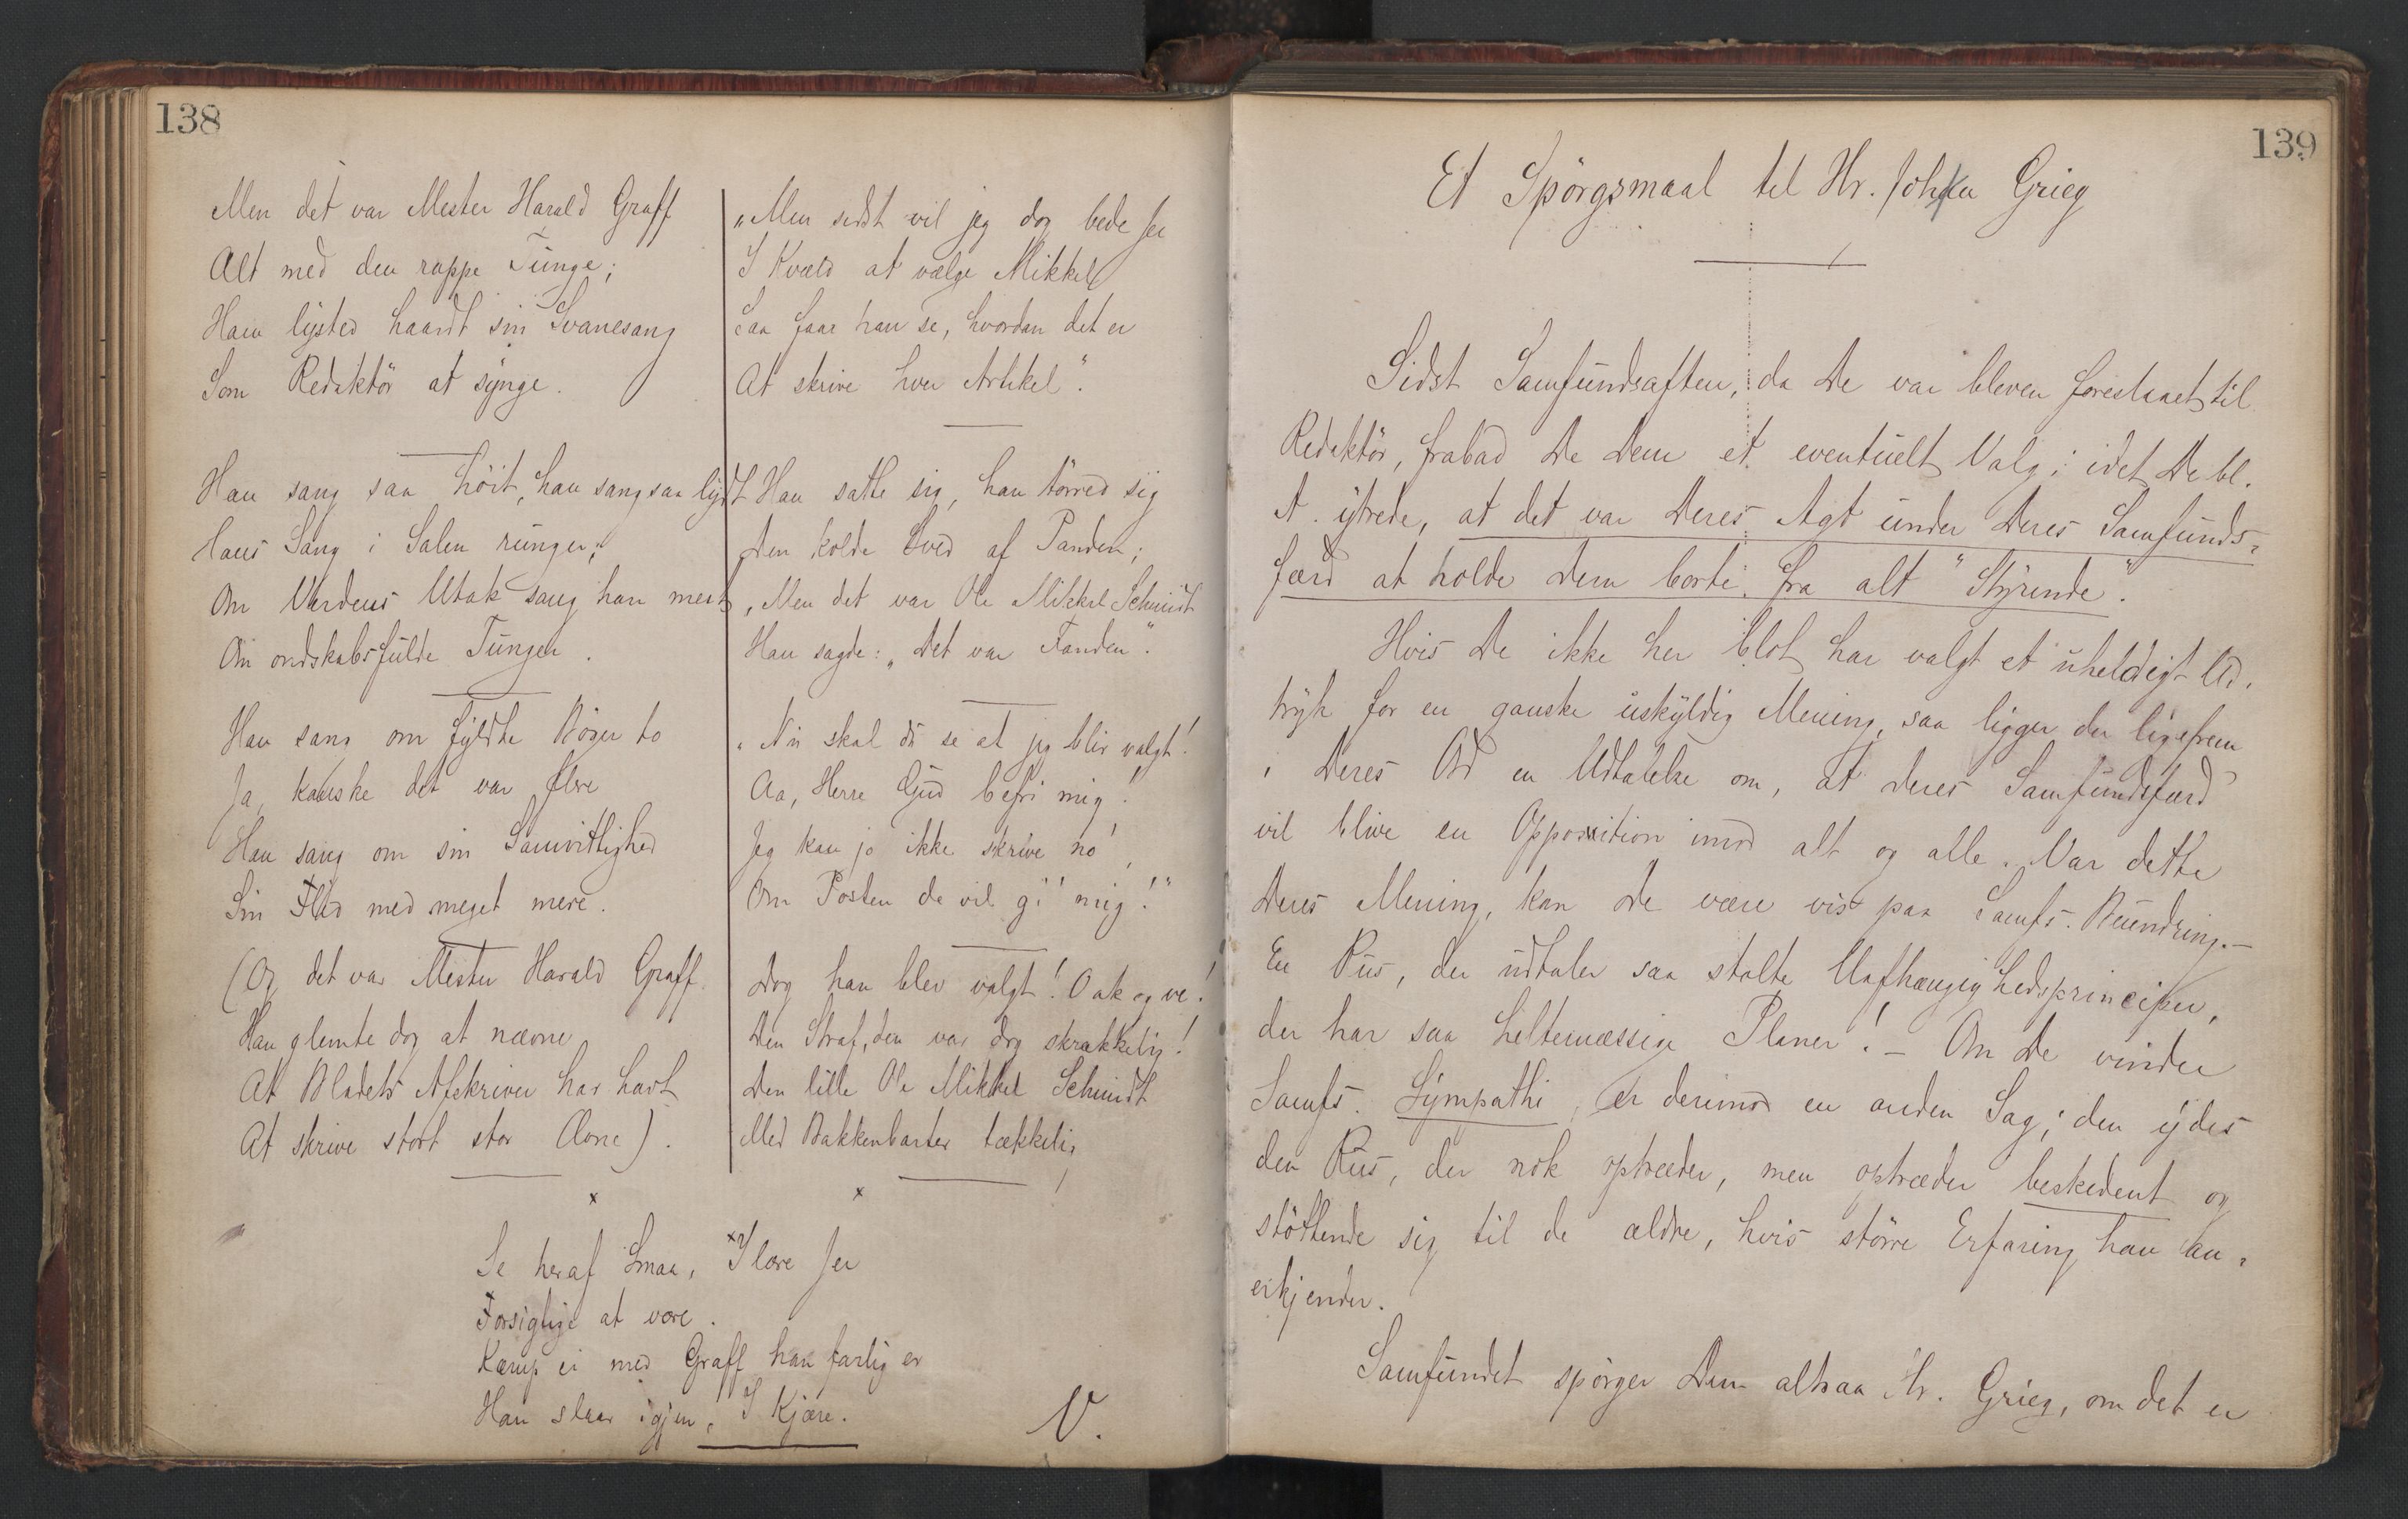 138
Men det var Mester Harald Graff
Alt med den rappe Tunge;
Ham lysted haardt sin Svanesang
Som Redaktör at synge.
Han sang saa höit, han sang saa lydt
Hans Sang i Salen runger;
Om Verdens Utak sang han mest
Om ondskabsfulde Tunger.
Han sang om fyldte Böger to
Ja, kanske det var flere
Han sang om sin Samvittighed
Sin Flid med meget mere.
(Og det var Mester Harald Graff.
Han glemte dog at nævne
At Bladets Afskriver har havt
At skrive stort stor Ævne).
„Men sidst vil jeg dog bede Jer
I Kvæld at vælge Mikkel
Saa faar han se, hvordan det er
At skrive hver Artikel".
Han satte sig, han törred sig
Den kolde Sved af Panden;
„Men det var Ole Mikkel Schmidt
Han sagde: „Det var Fanden".
„Nu skal du se at jeg blir valgt!
Aa, Herre Gud befri mig!
Jeg kan jo ikke skrive no',
Om Posten de vil gi' mig!"
Dog han blev valgt! O ak og ve!
Den Straf, den var dog skrækkelig!
Den lille Ole Mikkel Schmidt
Med Bakkenbarter tækkelig
x x x
Se heraf Smaa, I lære Jer
Forsigtige at være.
Kæmp ei med Graff han farlig er
Han slaar igjen, I Kjære.
V.
139
Et Spörgsmaal til Hr. Grieg
Sidst Samfundsaften, da De var bleven foreslaaet til
Redaktör, frabad De Dem et eventuelt Valg; idet De bl.
A. ytrede, at det var Deres Agt under Deres Samfunds-
færd at holde Dem borte fra alt "Styrende".
Hvis De ikke her blot har valgt et uheldigt Ud-
tryk for en ganske uskyldig Mening, saa ligger der ligefrem
i Deres Ord en Udtalelse om, at Deres Samfundsfærd
vil blive en Opposition imod alt og alle. Var dette
Deres Mening, kan De være vis paa Samfs. Beundring.—
En Rus, der udtaler saa stolte Uafhængighedsprinciper,
der har saa heltemæssige Planer! – Om De vinder
Samfs. Sympathi, er derimod en anden Sag; den ydes
den Rus, der nok optræder, men optræder beskedent og
støttende sig til de ældre, hvis större Erfaring han an-
erkjender.
Samfundet spörger Dem altsaa Hr. Grieg, om det er